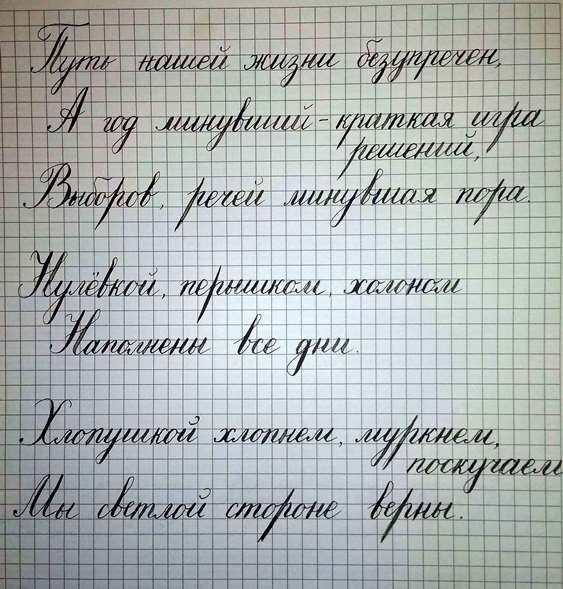 Путь нашей жизни безупречен,
А год минувший - краткая игра
решений,
Выборов, речей минувшая пора.
Нулёвкой, пёрышком, холоном
Наполнены все дни.
Хлопушкой хлопнем, муркнем,
поскучаем
Мы светлой стороне верны.